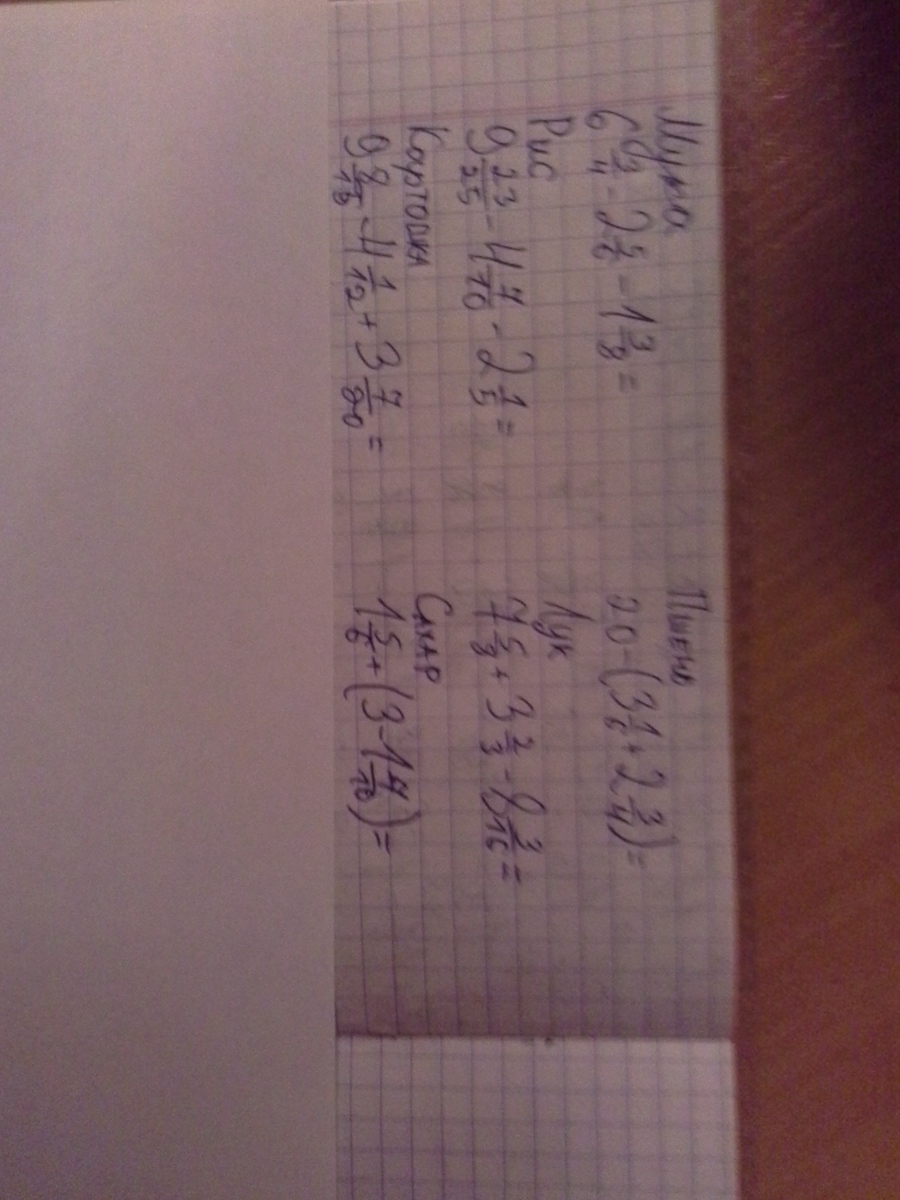 Мука
6 3/4 - 2 5/6 - 1 3/8 =
Рис
9 23/25 - 4 7/10 - 2 1/5 =
Картошка
- 4 1/12 + 3 7/80 =
Пшено
20 - (3 1/6 + 2 3/4) =
Лук
7 5/8 + 3 2/3 - 8 3/16 =
Сахар
1 5/6 + (3 - 1 7/10) =